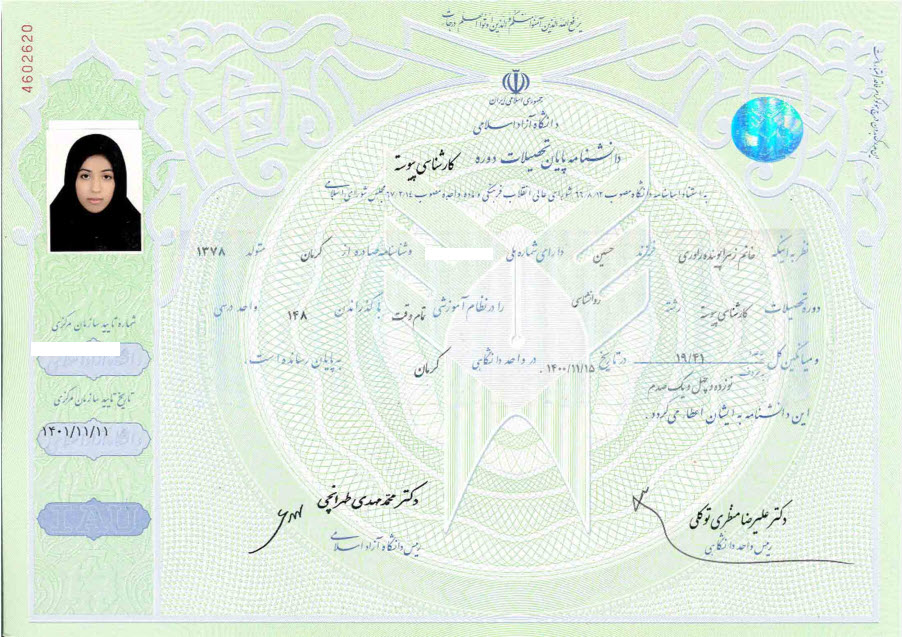 یرفع الله الذین آمنوا منکم و الذین اوتوا العلم درجات
4602620
جمهوری اسلامی ایران
دانشگاه آزاد اسلامی
دانشنامه پایان تحصیلات دوره کارشناسی پیوسته
به استناد اساسنامه دانشگاه مصوب ۶۶/۸/۱۲ شورای عالی انقلاب فرهنگی و ماده واحده مصوب ۶۷/۲/۱۴ مجلس شورای اسلامی
نظر به اینکه خانم زهرا پوینده راوری فرزند حسین دارای شماره ملی و شناسنامه صادره از کرمان متولد ۱۳۷۸
دوره تحصیلات کارشناسی پیوسته رشته روانشناسی را در نظام آموزشی تمام وقت با گذراندن ۱۴۸ واحد درسی
و میانگین کل به عدد ۱۹/۴۱ به حروف نوزده و چهل و یک صدم در تاریخ ۱۴۰۰/۱۱/۱۵ در واحد دانشگاهی کرمان به پایان رسانده است.
این دانشنامه به ایشان اعطا می گردد.
شماره تایید سازمان مرکزی
تاریخ تایید سازمان مرکزی
۱۴۰۱/۱۱/۱۱
IAU
دکتر علیرضا منظری توکلی
رئیس واحد دانشگاهی
دکتر محمد مهدی طهرانچی
رئیس دانشگاه آزاد اسلامی